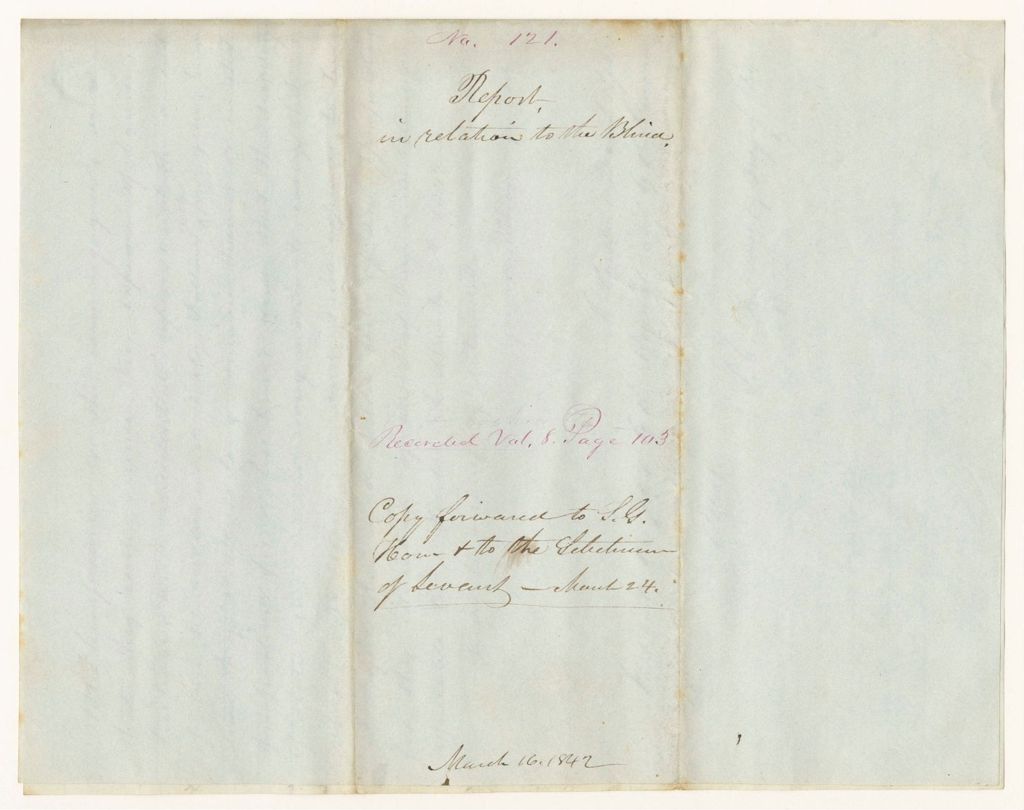 No. 121.
Report,
in relation to the Blind.
Recorded Vol. 8. Page 103
Copy forward to S.G.
Howe & to the Selectmen
of Levant — March 24.
March 16. 1842